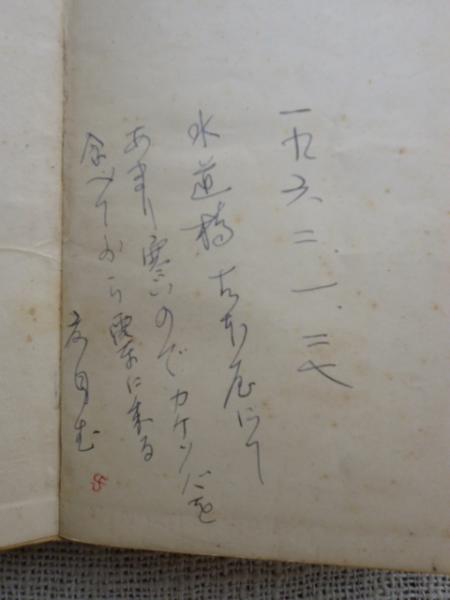 一九六二、一、二七
水道橋 古本屋にて
あまり寒いのでカケソバを
食べてから電車に乗る